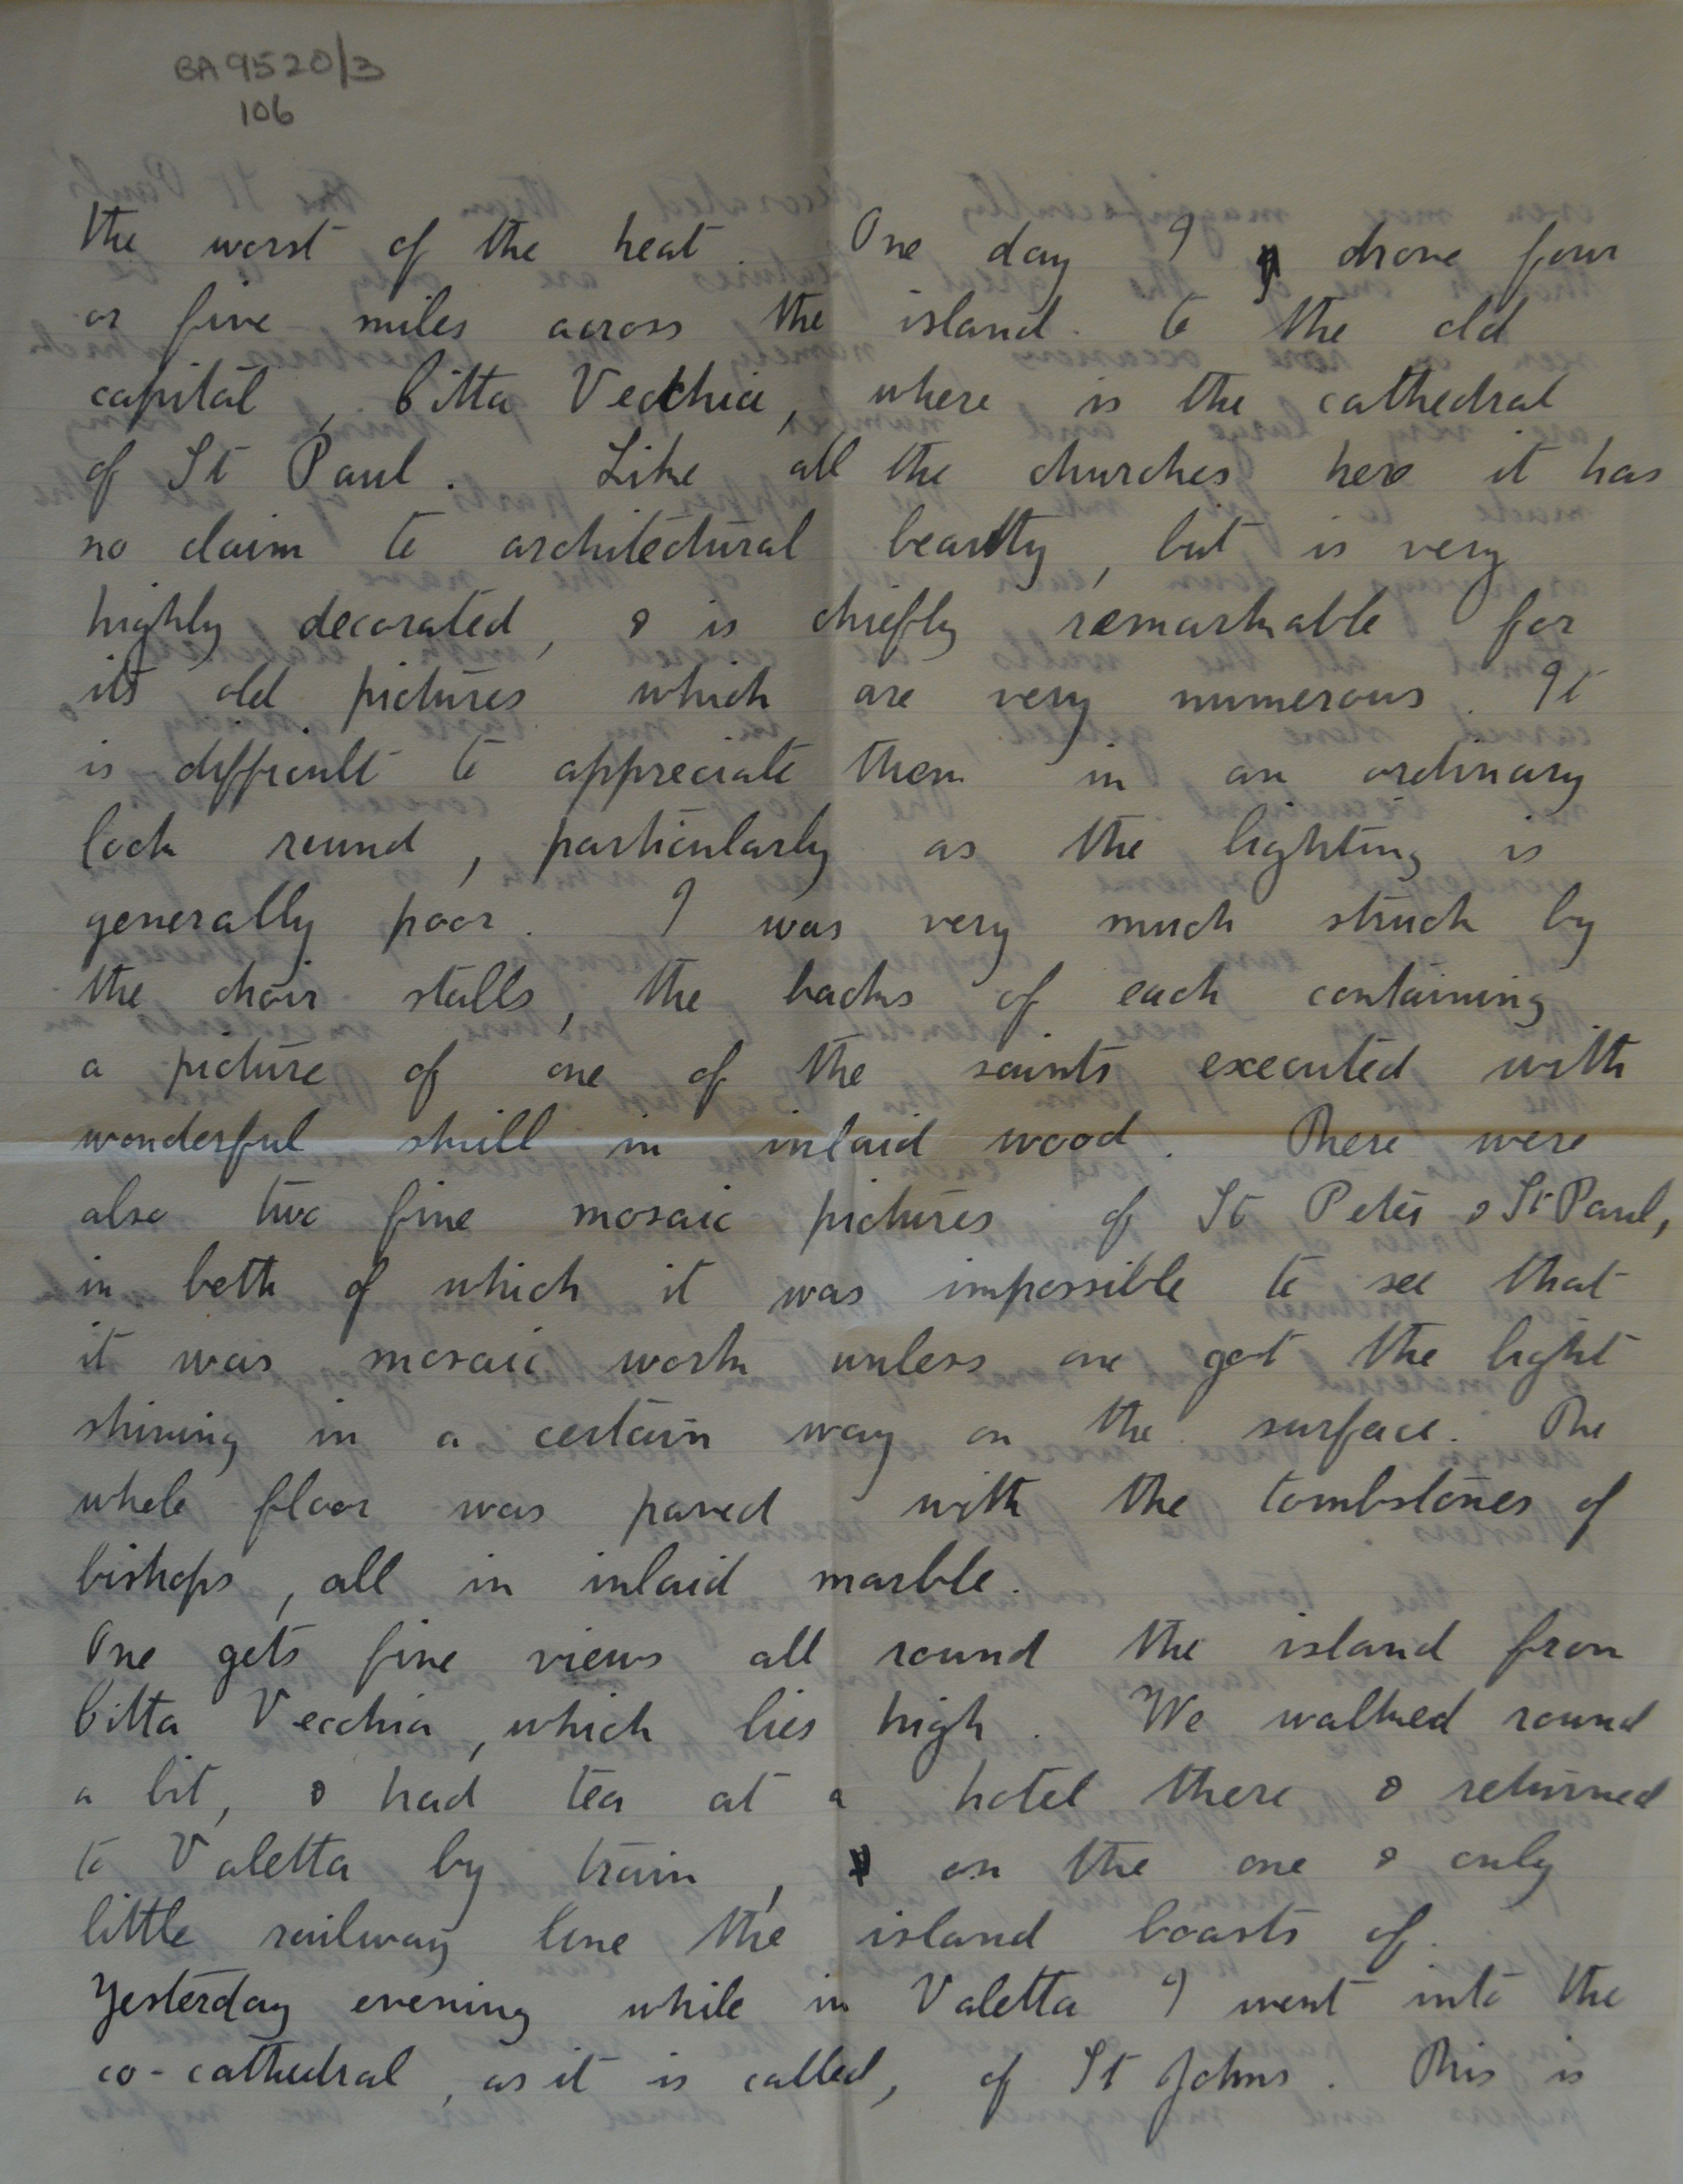 BA9520/3
106
the worst of the heat. One day I drove four
or five miles across the island. to the old
capital, Citta Vecchia, where is the cathedral
of St Paul. Like all the churches here it has
no claim to architectural beauty, but is very
highly decorated, & is chiefly remarkable for
its old pictures which are very numerous. It
is difficult to appreciate them in an ordinary
look round, particularly as the lighting is
generally poor. I was very much struck by
the choir stalls, the backs of each containing
a picture of one of the saints executed with
wonderful skill in inlaid wood. There were
also two fine mosaic pictures of St Peter & St Paul,
in both of which it was impossible to see that
it was mosaic work unless one got the light
shining in a certain way on the surface. The
whole floor was paved with the tombstones of
bishops, all in inlaid marble.
One gets fine views all round the island from
Citta Vecchia, which lies high. We walked round
a bit, & had tea at a hotel there & returned
to Valetta by train, on the one & only
little railway line the island boasts of.
Yesterday evening while in Valetta I went into the
co-cathedral, as it is called, of St Johns. This is